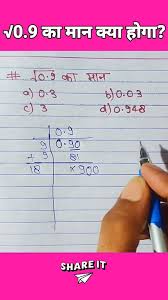 √0.9 का मान क्या होगा?
# √0.9 का मान
a) 0.3 b) 0.03
c) 3 d) 0.948
0.9
9 0.90
+ 9 81
18 × 900
SHARE IT